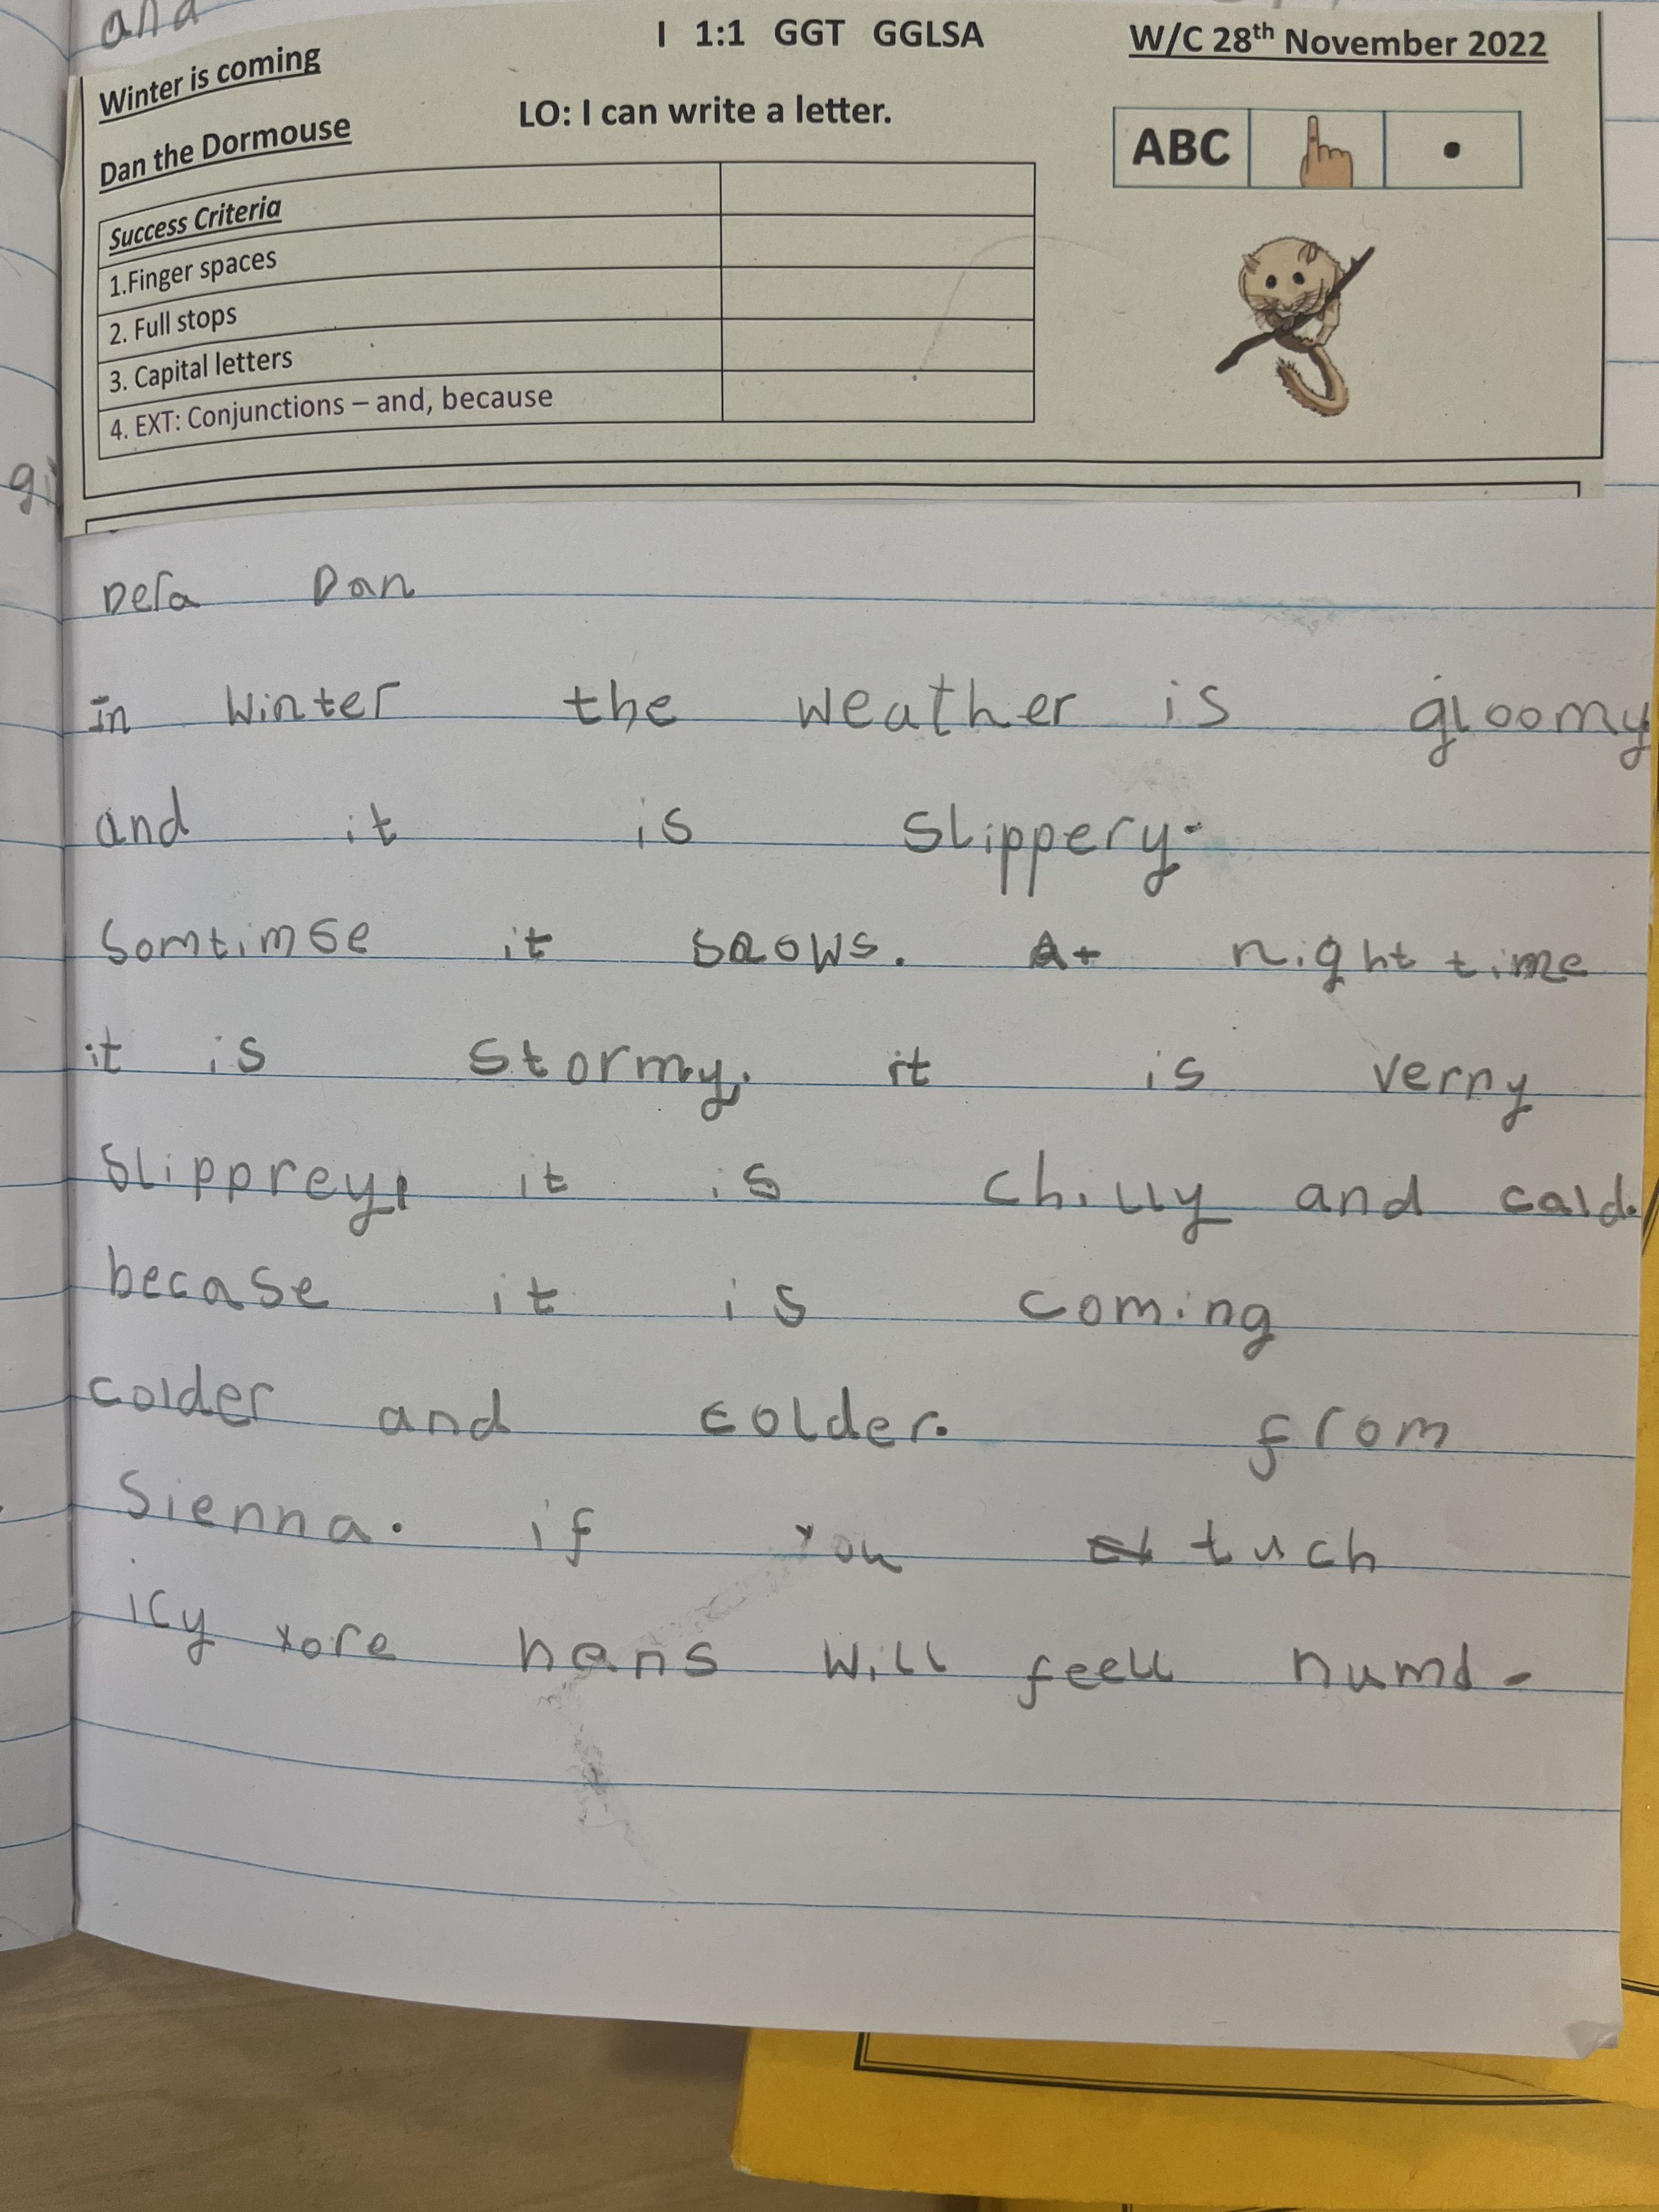 and
I 1:1 GGT GGLSA
W/C 28th November 2022
Winter is coming
LO: I can write a letter.
Dan the Dormouse
ABC
Success Criteria
1.Finger spaces
2. Full stops
3. Capital letters
4. EXT: Conjunctions – and, because
gi
Dera Dan
In Winter the weather is gloomy
and it is slippery.
Somtimse it snows. At night time
it is stormy. it is verny
slipprey. it is chilly and cald.
becase it is coming
colder and colder. from
Sienna. if you tuch
icy yore hans will feell numd.